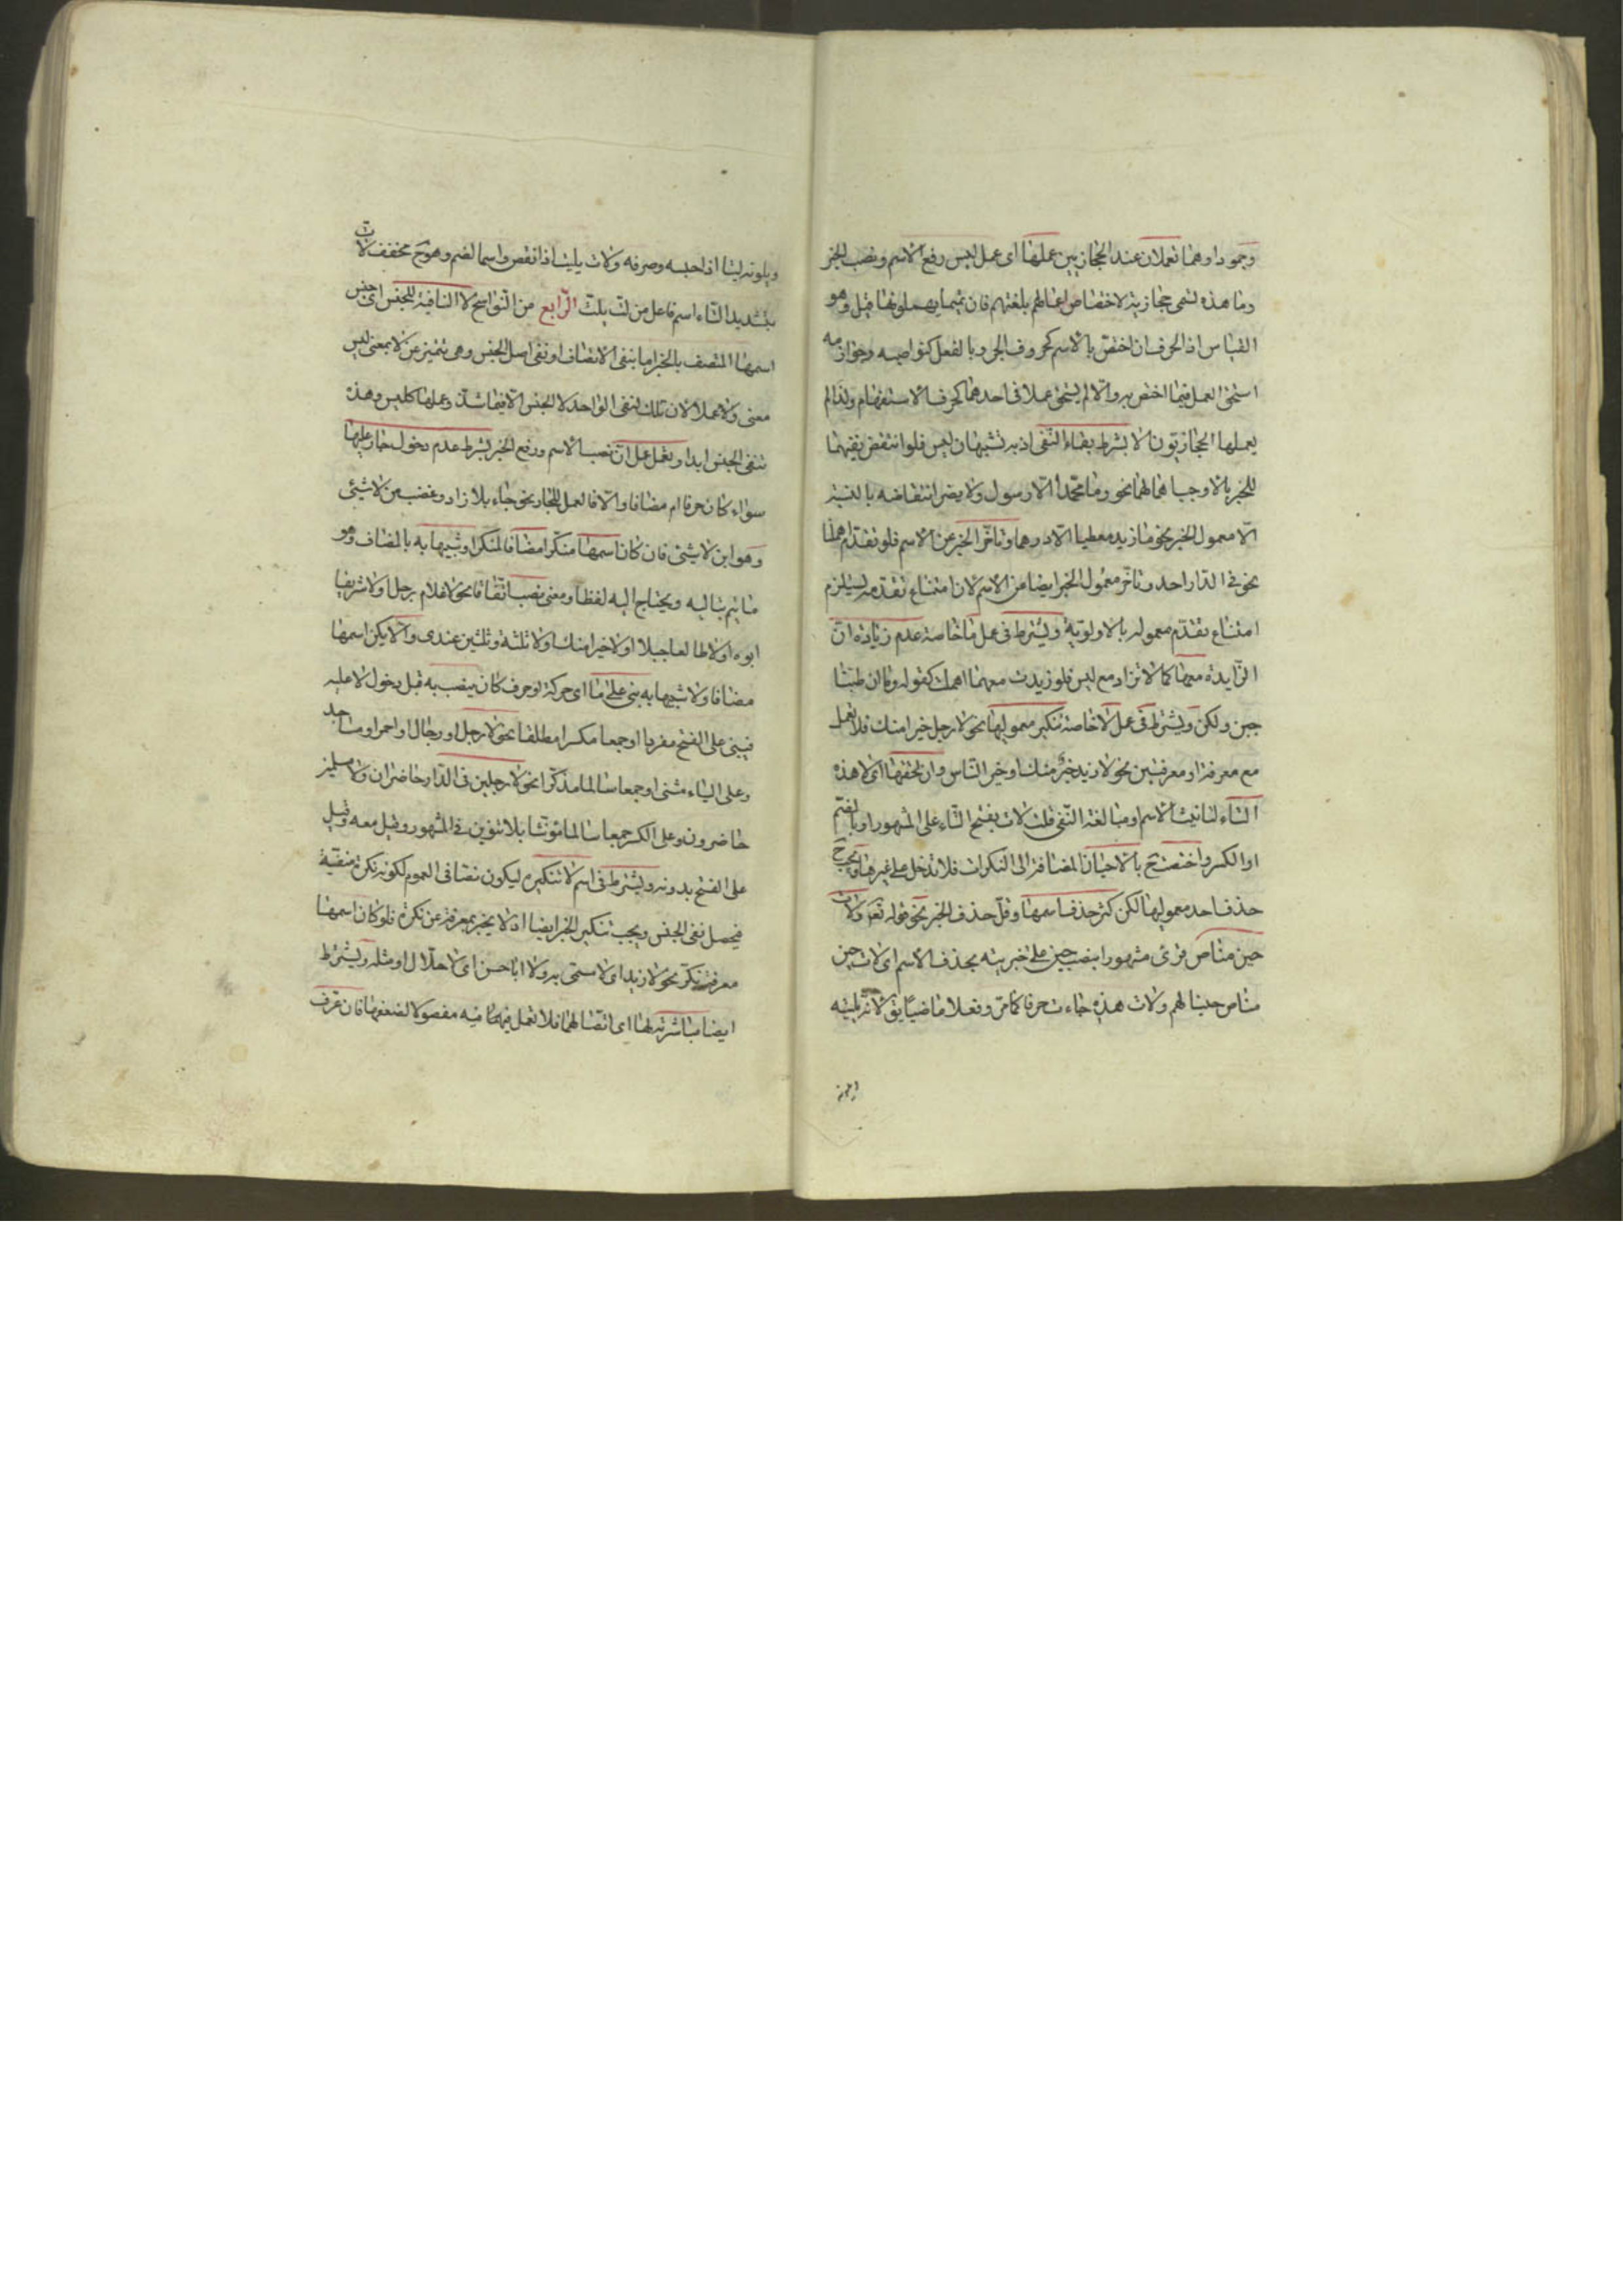 وجمودا وهما تعملان عند الحجازيين عملها اى عمل ليس رفع الاسم ونصب الخبر
وما هذه تسمى حجازية لاختصاص اعمالهم بلغتهم فان تميما يهملونها قيل وهو
القياس اذ الحرف ان اختص بالاسم كحروف الجر وبالفعل كنواصبه وجوازمه
استحق العمل فيما اختص به والا لم يستحق عملا فى احدهما كحرف الاستفهام ولذا لم
يعملها الحجازيون الا بشرط بقاء النفى اذ به تشبهان ليس فلو انتقض نفيهما
للخبر بالا وجب اهمالهما نحو وما محمد الا رسول ولا يضر انتقاضه بالنسبة
الا معمول الخبر نحو ما زيد معطيا الا درهما وتاخر الخبر عن الاسم فلو تقدم اهملا
نحو فى الدار احد وتاخر معمول الخبر ايضا عن الاسم لان امتناع تقدمه يستلزم
امتناع تقدم معموله بالاولوية ويشترط فى عمل ما خاصة عدم زيادة ان
الزايدة معها كما لا تزاد مع ليس فلو زيدت معهما اهملت كقوله وما ان طبنا
جبن ولكن ويشترط فى عمل لا خاصة تنكير معموليها نحو لا رجل خيرا منك فلا تعمل
مع معرفة او معرفتين نحو لا زيد خير منك او خير الناس وان لحقتها اى لا هذه
التاء لتانيث الاسم او مبالغة النفى قلت لات بفتح التاء على المشهور او بالضم
او الكسر واختصت ح بالاحيان المضافة الى النكرات فلا تدخل على غيرها ويجب ح
حذف احد معموليها لكن كثر حذف اسمها وقل حذف الخبر نحو قوله تعه ولات
حين مناص قرئ مشهورا بنصب حين على خبريته بحذف الاسم اى لات حين
مناص حينا لهم ولات هذه جاءت حرفا كما مر وفعلا ماضيا يق لاته يليته
ويلوته ليتا اذا حبسه وصرفه ولات يليت اذا نقص واسما لصنم وهو ح مخفف لات
بتشديد التاء اسم فاعل من لت يلت الرابع من النواسخ لا النافية للجنس اى جنس
اسمها المتصف بالخبر اما بنفى الاتصاف او نفى اصل الجنس وهى تتميز عن لا بمعنى ليس
معنى ولا عملا لان تلك لنفى الواحد لا الجنس الا فيما شذ وعملها كليس وهذه
تنفى الجنس ابدا وتعمل عمل ان نصب الاسم ورفع الخبر بشرط عدم دخول جار عليها
سواء كان حرفا ام مضافا والا فالعمل للجار نحو جاء بلا زاد وغضب من لا شيئ
وهو ابن لا شيئ فان كان اسمها منكرا مضافا لمنكر او شبيها به بالمضاف وهو
ما يتم بتاليه ويحتاج اليه لفظا ومعنى نصب اتفاقا نحو لا غلام رجل او لا شريفا
ابوه او لا طالعا جبلا او لا خيرا منك او لا ثلثة وثلثين عندى والا يكن اسمها
مضافا ولا شبيها به بنى على ما اى حركة او حرف كان ينصب به قبل دخول لا عليه
فيبنى على الفتح مفردا او جمعا مكسرا مطلقا نحو لا رجل او رجال او احمر او مساجد
وعلى الياء مثنى او جمعا سالما مذكرا نحو لا رجلين فى الدار حاضران ولا مسلمين
حاضرون وعلى الكسر جمعا سالما مؤنثا بلا تنوين فى المشهور وقيل معه وقيل
على الفتح بدونه ويشترط فى اسم لا تنكيره ليكون نصا فى العموم لكونه نكرة منفية
فيحصل نفى الجنس ويجب تنكير الخبر ايضا اذ لا يخبر بمعرفة عن نكرة فلو كان اسمها
معرفة نكر نحو لا زيد اى لا مسمى به ولا ابا حسن اى لا حلال او مثله ويشترط
ايضا مباشرته لها اى اتصالهما فلا تعمل فيه مفصولا لضعفها فان عرف